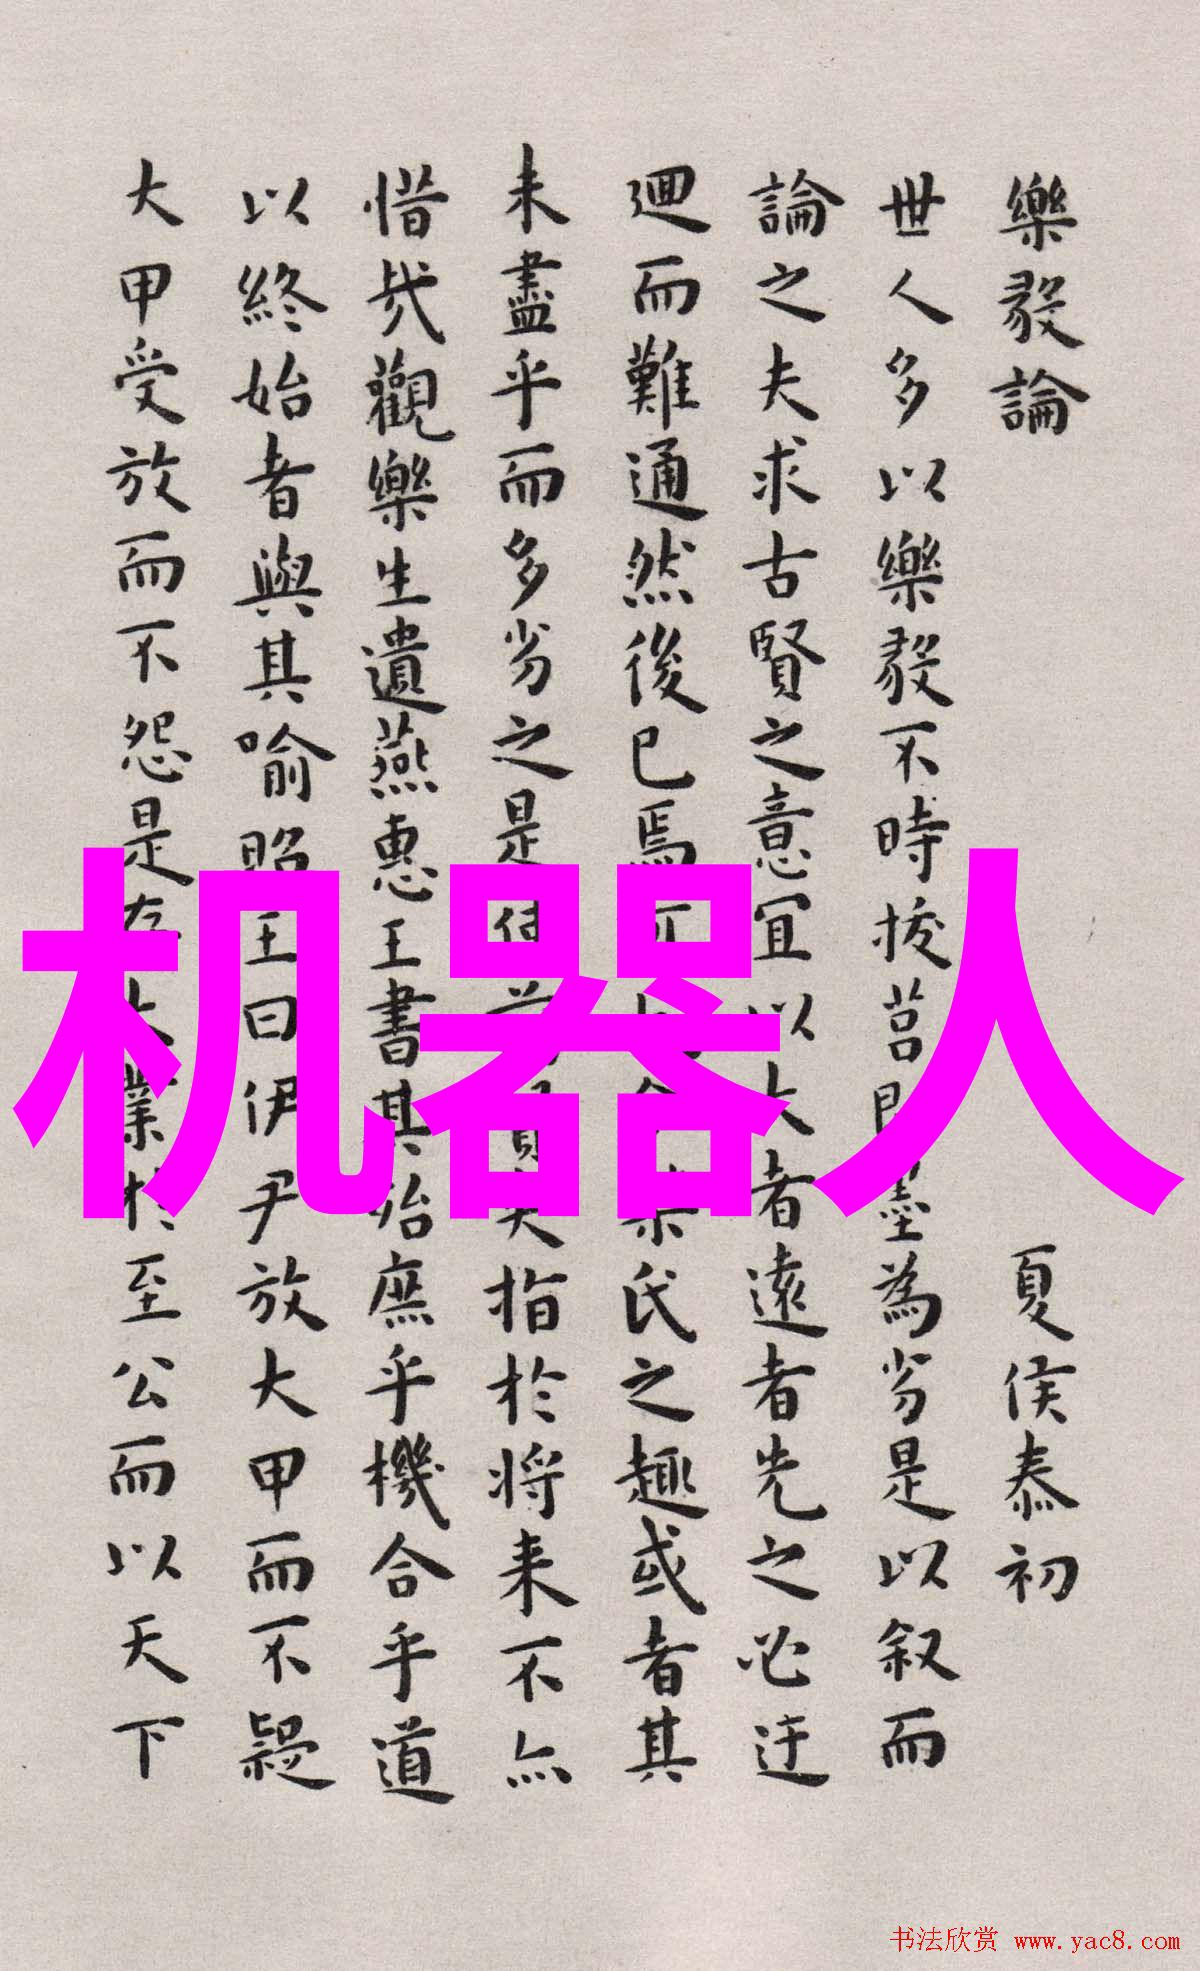 樂毅論 夏侯泰初
世人多以樂毅不時拔莒即墨為劣是以叙而
論之夫求古賢之意宜以大者遠者先之必迂
迴而難通然後已焉可也今樂氏之趣或者其
未盡乎而多劣之是使前賢失指於將来不亦
惜哉觀樂生遺燕惠王書其殆庶乎機合乎道
以終始者與其喻昭王曰伊尹放大甲而不疑
大甲受放而不怨是存大業於至公而以天下
机器人
书法欣赏 www.yac8.com